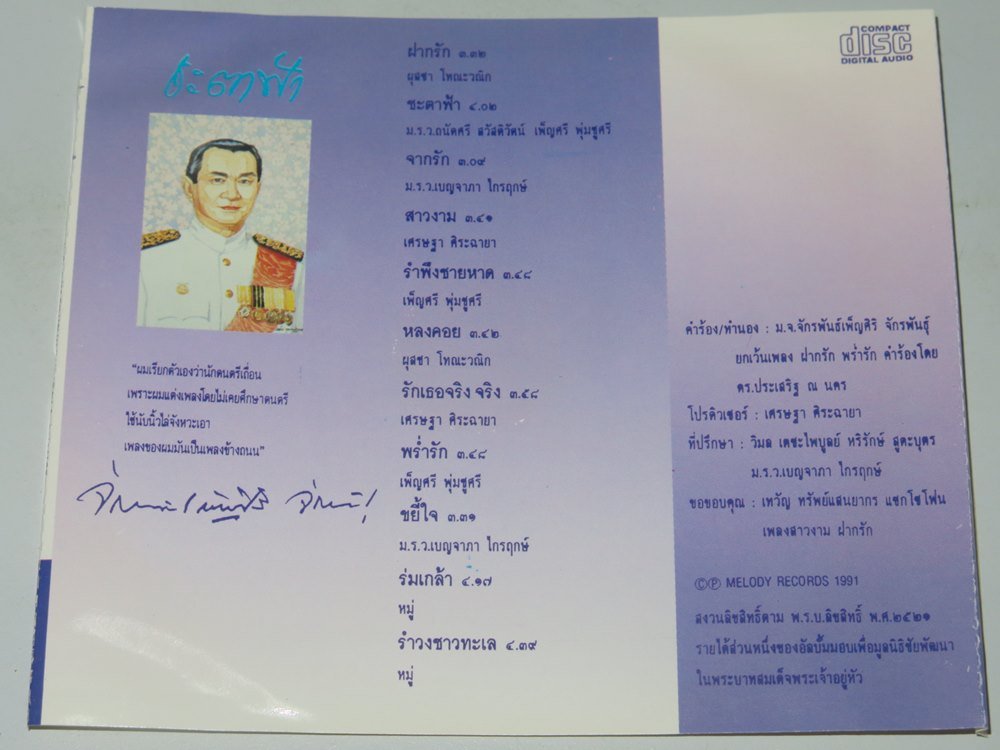 ชะตาฟ้า
"ผมเรียกตัวเองว่านักดนตรีเถื่อน
เพราะผมแต่งเพลงโดยไม่เคยศึกษาดนตรี
ใช้นับนิ้วไล่จังหวะเอา
เพลงของผมมันเป็นเพลงข้างถนน"
ฝากรัก ๓.๓๒
ผุสชา โทณะวณิก
ชะตาฟ้า ๔.๐๒
ม.ร.ว.ถนัดศรี สวัสดิวัตน์ เพ็ญศรี พุ่มชูศรี
จากรัก ๓.๐๙
ม.ร.ว.เบญจาภา ไกรฤกษ์
สาวงาม ๓.๔๑
เศรษฐา ศิระฉายา
รำพึงชายหาด ๓.๔๘
เพ็ญศรี พุ่มชูศรี
หลงคอย ๓.๔๒
ผุสชา โทณะวณิก
รักเธอจริง จริง ๓.๕๘
เศรษฐา ศิระฉายา
พร่ำรัก ๓.๔๘
เพ็ญศรี พุ่มชูศรี
ขยี้ใจ ๓.๓๑
ม.ร.ว.เบญจาภา ไกรฤกษ์
ร่มเกล้า ๔.๑๗
หมู่
รำวงชาวทะเล ๔.๓๙
หมู่
COMPACT
disc
DIGITAL AUDIO
คำร้อง/ทำนอง : ม.จ.จักรพันธ์เพ็ญศิริ จักรพันธุ์
ยกเว้นเพลง ฝากรัก พร่ำรัก คำร้องโดย
ดร.ประเสริฐ ณ นคร
โปรดิวเซอร์ : เศรษฐา ศิระฉายา
ที่ปรึกษา : วิมล เตชะไพบูลย์ หริรักษ์ สูตะบุตร
ม.ร.ว.เบญจาภา ไกรฤกษ์
ขอขอบคุณ : เทวัญ ทรัพย์แสนยากร แซกโซโฟน
เพลงสาวงาม ฝากรัก
©℗ MELODY RECORDS 1991
สงวนลิขสิทธิ์ตาม พ.ร.บ.ลิขสิทธิ์ พ.ศ.๒๕๒๑
รายได้ส่วนหนึ่งของอัลบั้มมอบเพื่อมูลนิธิชัยพัฒนา
ในพระบาทสมเด็จพระเจ้าอยู่หัว